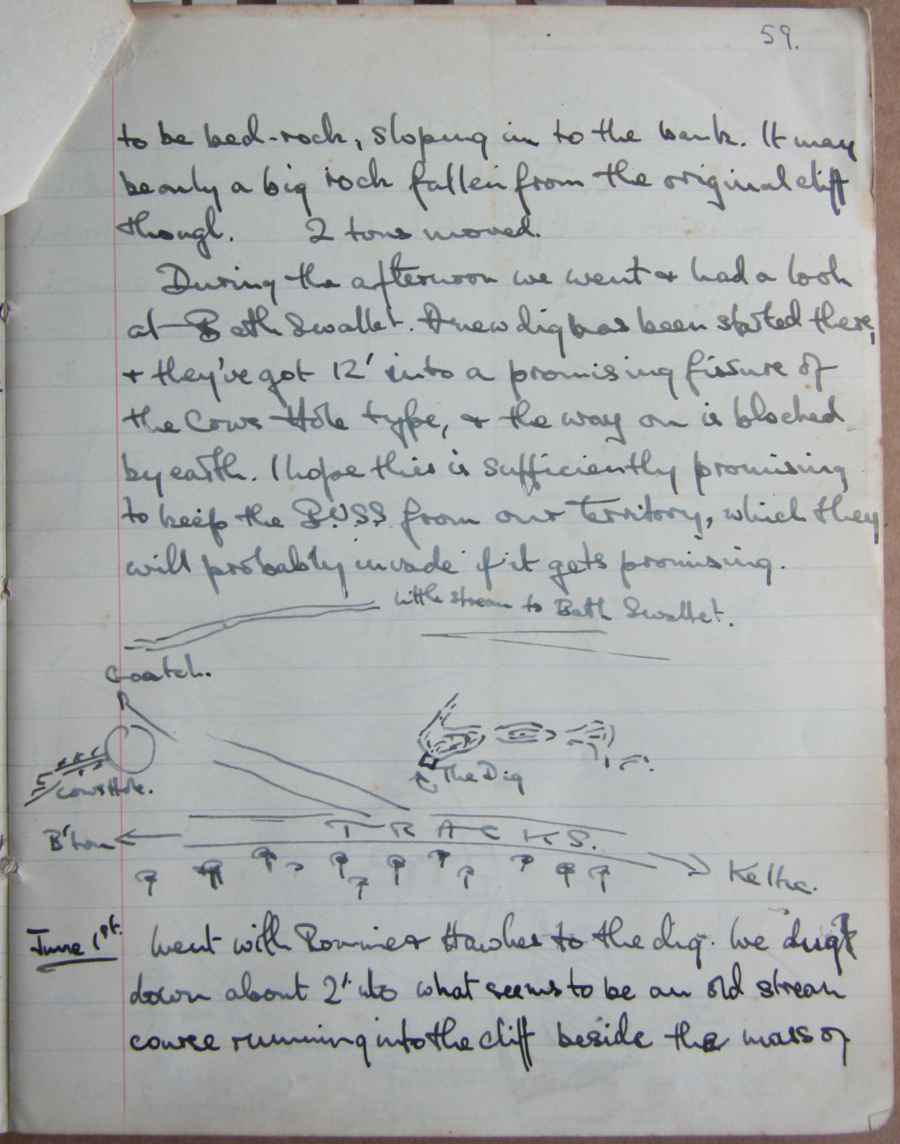 59.
to be bed-rock, sloping in to the bank. It may
be only a big rock fallen from the original cliff
though. 2 tons moved.
During the afternoon we went & had a look
at Bath Swallet. A new dig has been started there,
& they've got 12' into a promising fissure of
the Cows Hole type, & the way on is blocked
by earth. I hope this is sufficiently promising
to keep the BUSS from our territory, which they
will probably invade if it gets promising.
little stream to Bath Swallet.
Goatch.
Cows Hole.
The Dig
B'ton
TRACKS.
June 1st. Went with Hawkes to the dig. We dug
down about 2' into what seems to be an old stream
course running into the cliff beside the mass of